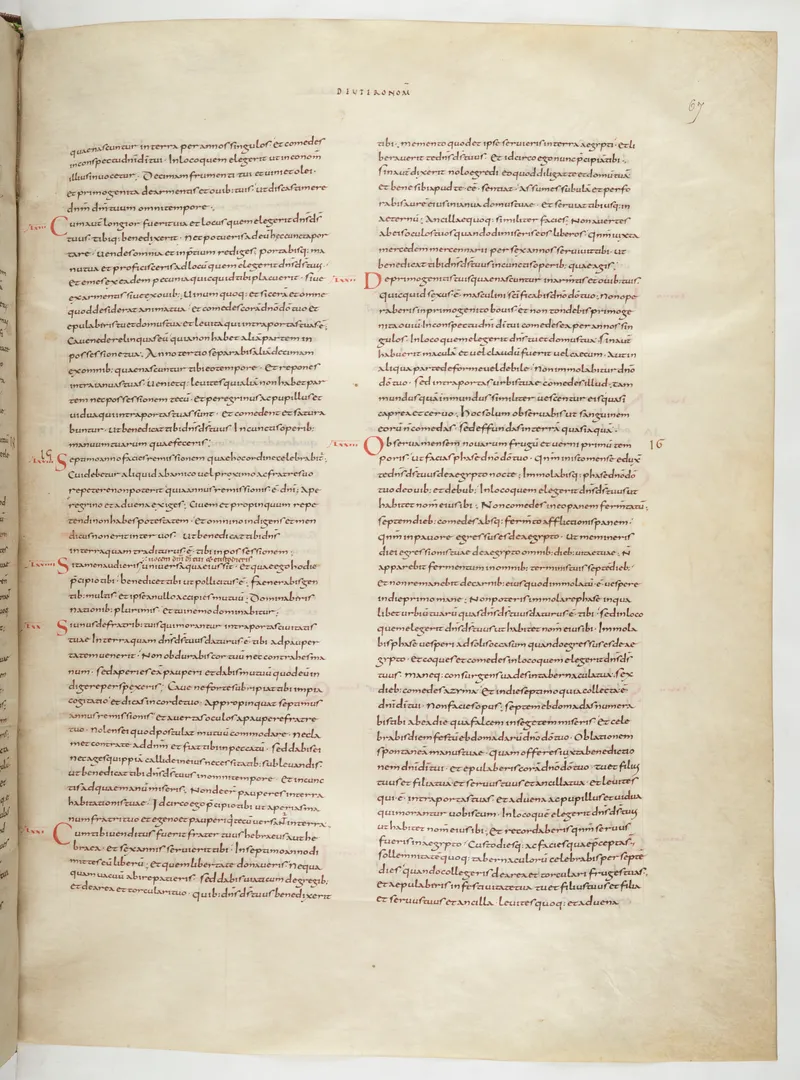 DEUTERONOM̄
67
quae nascuntur in terra per annos singulos et comedes
in conspectu dn̄i dī tui · In loco quem elegerit ut in eo nom̄
illius inuocetur · Decimam frumenti tui et uini et olei ·
et primogenita de armentis et ouib; tuis · ut discas timere
dn̄m dm̄ tuum omni tempore ·
Cum autē longior fuerit uia et locus quem elegerit dn̄s ds̄
tuus · tibiq; benedixerit · nec potueris ad eū haec cuncta por
tare · uendes omnia et in p̄tium rediges · portabisq; ma
nu tua et proficisceris ad locū quem elegerit dn̄s ds̄ tuus ·
et emes ex eadem pecunia quicquid tibi placuerit · siue
ex armentis siue ex ouib; Uinum quoq; et sicera et omne
quod desiderat anima tua · et comedes corā dn̄o dō tuo et
epulaberis tu et domus tua et leuita qui intra portas tuas ē ·
Caue ne derelinquas eū quia non habet aliā partem in
possessione tua · Anno tertio separabis aliā decimam
ex omnib; quae nascuntur tibi eo tempore · Et repones
intra ianuas tuas · Uenietq; leuites qui aliā non habet par
tem nec possessionem tecū · et peregrinus ac pupillus et
uidua qui intra portas tuas sunt · et comedent et satura
buntur · ut benedicat tibi dn̄s ds̄ tuus In cunctis operib;
manuum tuarum quae feceris ;
15
Septimo anno facies remissionem quae hoc ordine celebrabit̄ ·
Cui debetur aliquid ab amico uel proximo ac fratre suo
repetere non poterit quia annus remissionis ē dn̄i ; A pe
regrino et aduena exiges ; Ciuem et propinquum repe
tendi non habes potestatem · et omnino indigens et men
dicus non erit inter uos · Ut benedicat tibi dn̄s
in terra quam traditurus ē tibi in possessionem ;
Si tamen audieris uniuersa quae iussit · et quae ego hodie
p̄cipio tibi · benedicet tibi ut pollicitus ē ; faenerabis gen
tib; multis et ipse a nullo accipies mutuū ; Dominaberis
nationib; plurimis · et tui nemo dominabitur ;
Si unus de fratrib; tuis qui morantur intra portas ciuitatis
tuae In terra quam dn̄s ds̄ tuus daturus ē tibi ad pauper
tatem uenerit · Non obdurabis cor tuū nec contrahes ma
num · sed aperies eā pauperi et dabis mutuū quod eū in
digere perspexeris ; Caue ne forte subripiat tibi impia
cogitatio et dicas in corde tuo · Appropinquat septimus
annus remissionis et auertas oculos a paupere fratre
tuo nolens ei quod postulat mutuū commodare · ne cla
met contra te ad dn̄m et fiat tibi in peccatū · sed dabis ei
nec ages quippiā callide in eius necessitatib; subleuandis
ut benedicat tibi dn̄s ds̄ tuus in omni tempore · et in cunc
tis ad quae manū miseris · Non deer̄ pauperes in terra
habitationis tuae · Idcirco ego p̄cipio tibi ut aperias ma
num fratri tuo et egeno et pauperi q̄ tecū uersat̄ in terra ·
Cum tibi uenditus fuerit frater tuus hebraeus aut he
braea · et sex annis seruierit tibi · In septimo anno di
mittes eū liberū ; et quem libertate donaueris nequa
quam uacuū abire patieris · sed dabis uiaticum de gregib;
et de area et torculari tuo · quib; dn̄s ds̄ tuus benedixerit
tibi · memento quod et ipse seruieris in terra aegypti · et li
berauerit te dn̄s ds̄ tuus · et idcirco ego nunc p̄cipiā tibi ·
sin autē dixerit nolo egredi eo quod diligat te et domū tuā
et bene sibi apud te eē sentiat · assumes subulā et perfo
rabis aurē eius in ianua domus tuae · et seruiet tibi usq; in
aeternū ; Ancillae quoq; similiter facies · Non auertes
ab eis oculos tuos quando dimiseris eos liberos · qnm̄ iuxta
mercedem mercennarii per sex annos seruiuit tibi · ut
benedicat tibi dn̄s ds̄ tuus in cunctis operib; quae agis ·
De primogenitis tuis quae nascuntur in armtis et ouib; tuis
quicquid sexus ē masculini sc̄ificabis dn̄o dō tuo ; non ope
raberis in primogenito bouis et non tondebis primoge
nita ouiū In conspectu dn̄i dī tui comedes ea per annos sin
gulos · In loco quem elegerit dn̄s tu et domus tua · sin autē
habuerit maculā et uel claudū fuerit uel caecum · aut in
aliqua parte deforme uel debile · Non immolabitur dn̄o
dō tuo · sed intra portas urbis tuae comedes illud ; tam
mundus quā inmundus similiter uescentur eis quasi
caprea et ceruo ; Hoc solum obseruabis ut sanguinem
eorū n̄ comedas sed effundas in terra quasi aquā ·
16
Obserua mensem nouarum frugū et uerni primū tem
poris · ut facias phase dn̄o dō tuo · Qnm̄ in isto mense eduxit
te dn̄s ds̄ tuus de aegypto nocte ; Immolabisq; phase dn̄o dō
tuo de ouib; et de bub; In loco quem elegerit dn̄s ds̄ tuus ut
habitet nom̄ eius ibi ; Non comedes in eo panem fermtatū ;
septem dieb; comedes absq; fermto afflictionis panem ·
qnm̄ in pauore egressus es de aegypto · ut memineris
diei egressionis tuae de aegypto omnib; dieb; uitae tuae ; N̄
apparebit fermentum in omnib; terminis tuis septē dieb;
et non remanebit de carnib; eius quod immolatū ē uespere
in die primo mane ; Non poteris immolare phase in qua
libet urbiū tuarū quas dn̄s ds̄ tuus daturus ē tibi · sed in loco
quem elegerit dn̄s ds̄ tuus ut habitet nom̄ eius ibi ; Immola
bis phase uesperi ad solis occasum quando egressus es de ae
gypto · et coques et comedes in loco quem elegerit dn̄s ds̄
tuus · maneq; consurgens uades in tabernacula tua · sex
dieb; comedes azyma · et in die septimo quia collecta ē
dn̄i dī tui · Non facies opus ; septem ebdomadas numera
bis tibi ab ea die qua falcem in segetem miseris · et cele
brabis diem festū ebdomadarū dn̄o dō tuo · Oblationem
spontaneā manus tuae · quam offeres iuxta benedictio
nem dn̄i dī tui · et epulaberis corā dn̄o dō tuo · tu et filius
tuus et filia tua et seruus tuus et ancilla tua · et leuites
qui ē intra portas tuas · et aduena ac pupillus et uidua
qui morantur uobiscum · In loco quē elegerit dn̄s ds̄ tuus
ut habitet nom̄ eius ibi ; Et recordaberis qnm̄ seruus
fueris in aegypto · Custodiesq; ac facies quae p̄cepta s̄ ·
sollemnitatē quoq; tabernaculorū celebrabis per septē
dies quando collegeris de area et torculari fruges tuas ;
et aepulaberis in festiuitate tua tu et filius tuus et filia
et seruus tuus et ancilla leuites quoq; et aduena